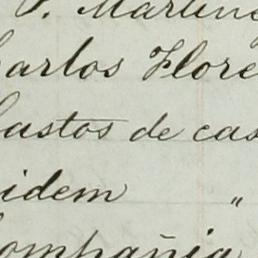 P. Martine
Carlos Flore
Gastos de cas
idem "
Compañia